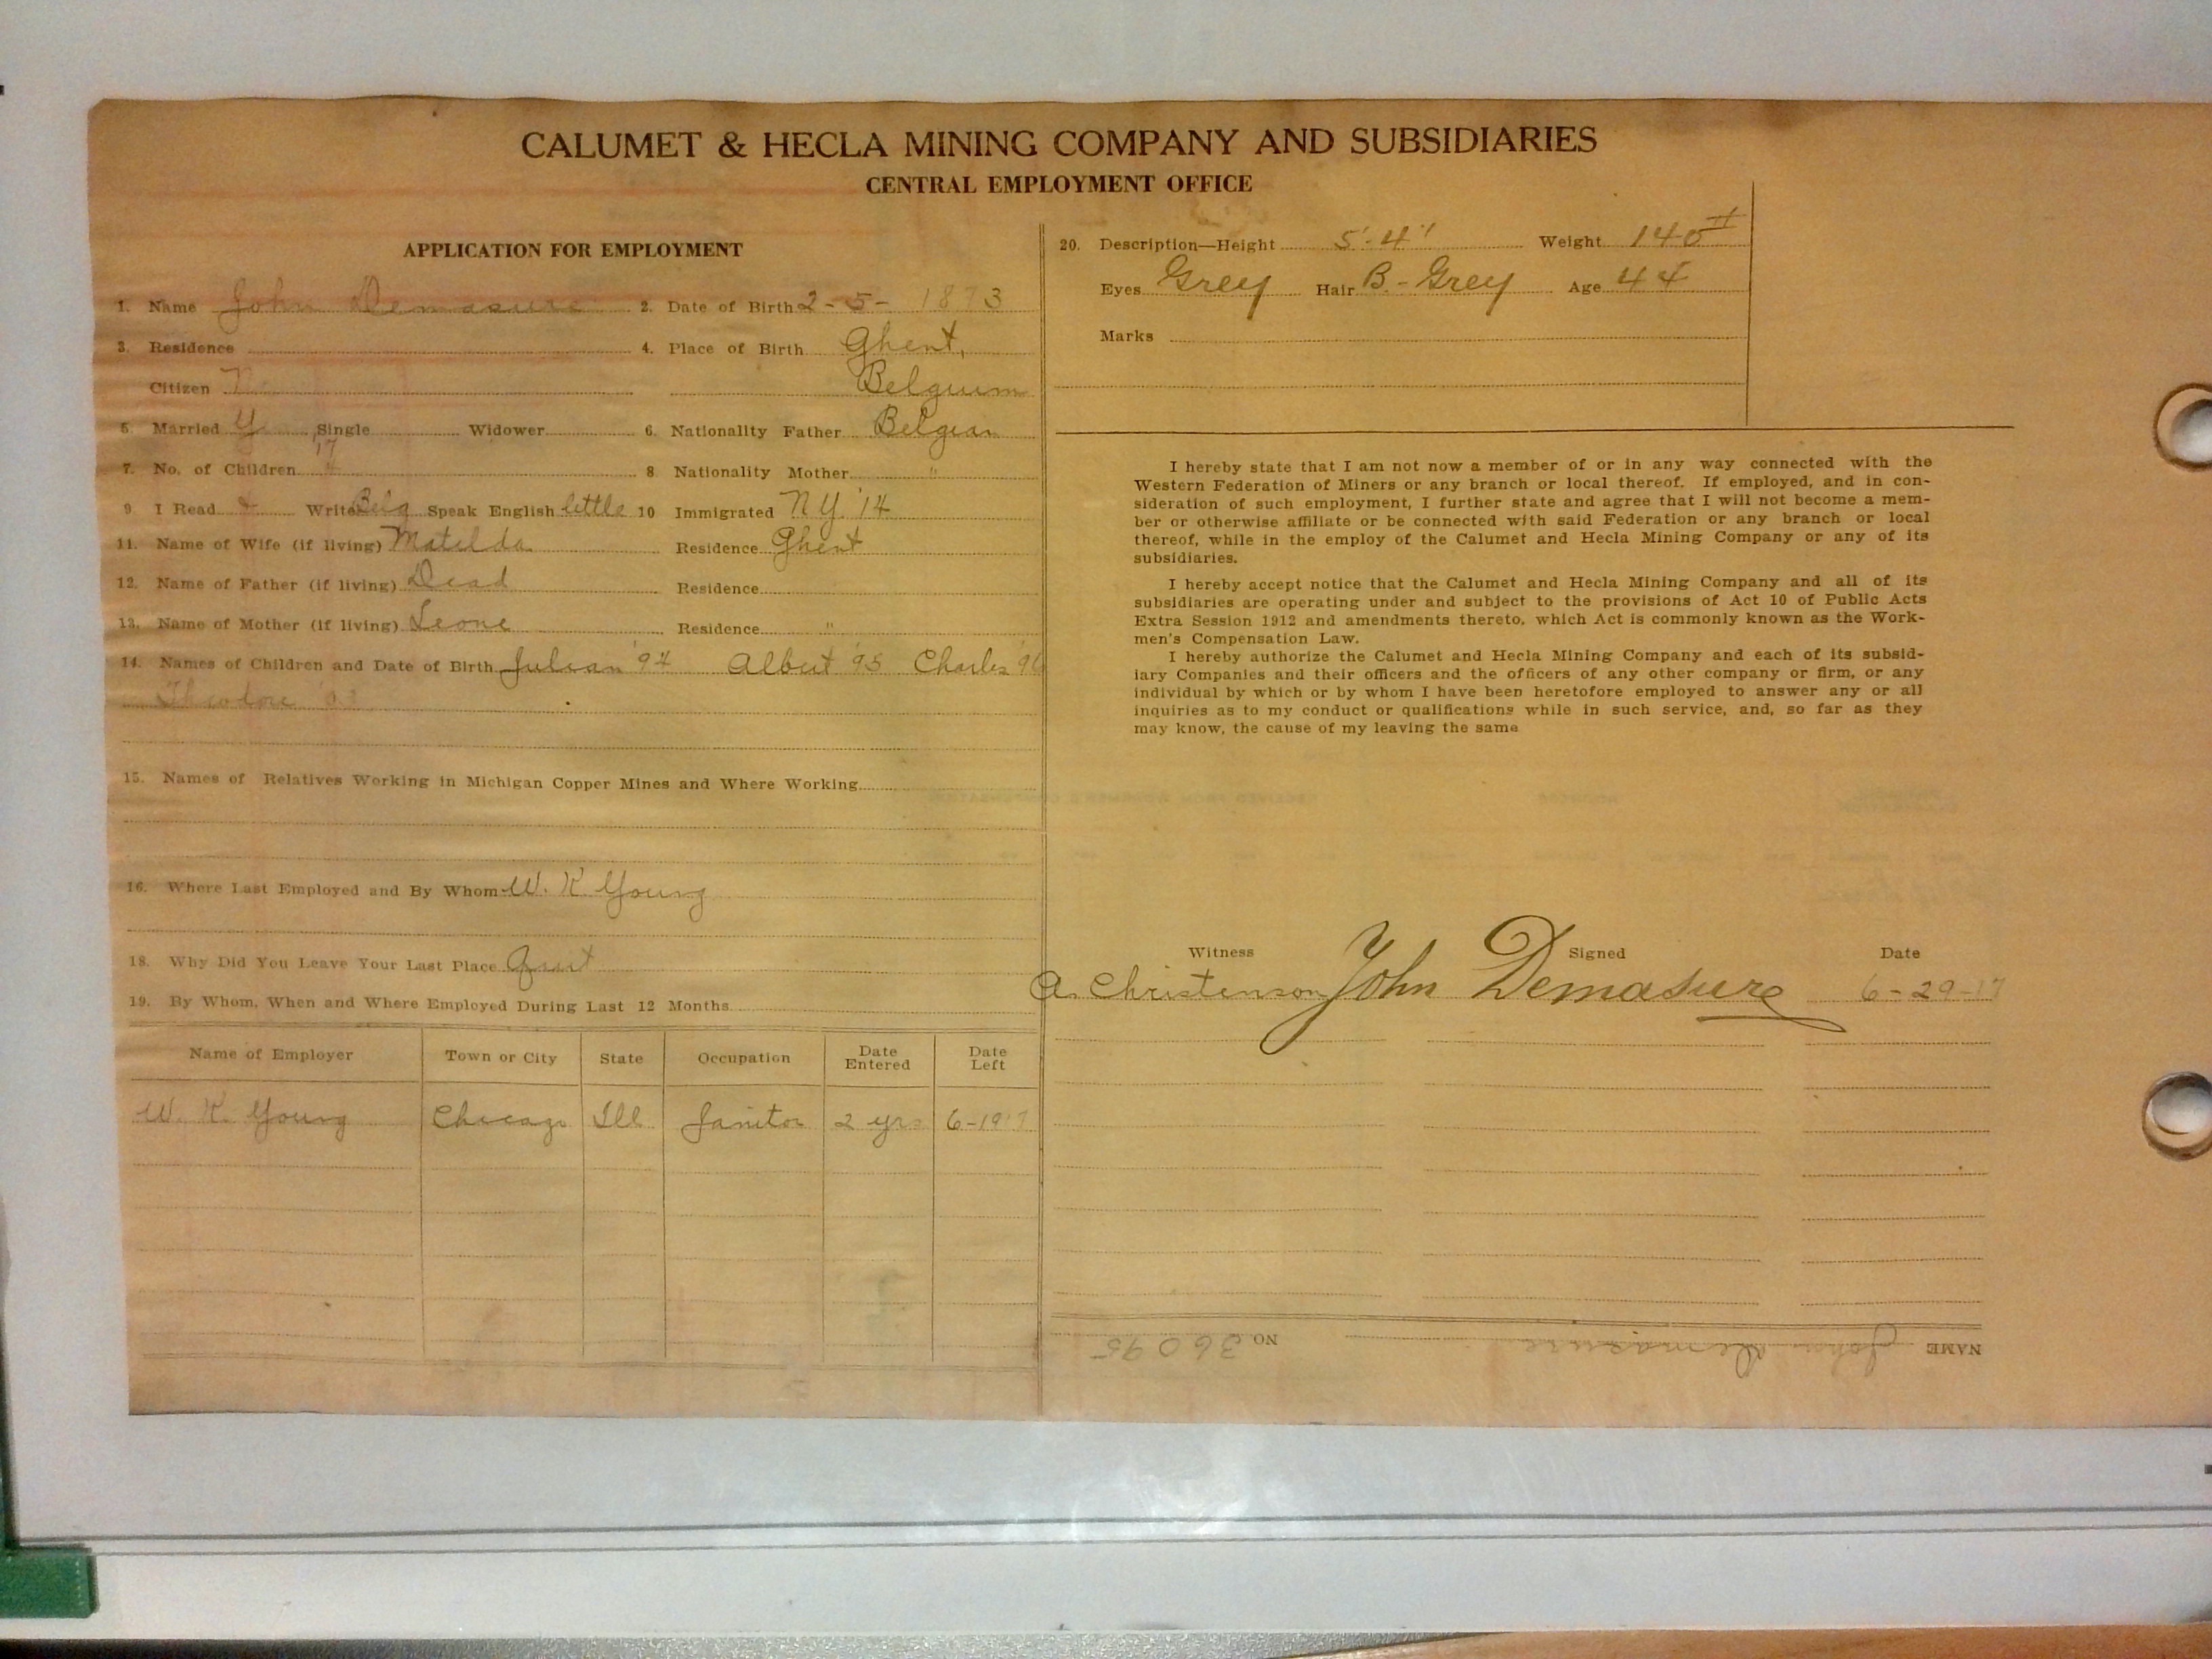 CALUMET & HECLA MINING COMPANY AND SUBSIDIARIES
CENTRAL EMPLOYMENT OFFICE
APPLICATION FOR EMPLOYMENT
1. Name John Demasure 2. Date of Birth 2-5-1873
3. Residence 4. Place of Birth Ghent,
Citizen N Belgium
5. Married Y Single Widower 6. Nationality Father Belgian
7. No. of Children 4 8. Nationality Mother "
9 I Read & Write Belg Speak English little 10 Immigrated N.Y. '14
11. Name of Wife (if living) Matilda Residence Ghent
12. Name of Father (if living) Dead Residence
13. Name of Mother (if living) Leone Residence "
14. Names of Children and Date of Birth Julian '94 Albert '95 Charles '96
Theodore '03
15. Names of Relatives Working in Michigan Copper Mines and Where Working
16. Where Last Employed and By Whom W. K Young
18. Why Did You Leave Your Last Place Quit
19. By Whom, When and Where Employed During Last 12 Months
Name of Employer Town or City State Occupation Date Entered Date Left
W. K. Young Chicago Ill Janitor 2 yrs 6-1917
20. Description—Height 5'-4" Weight 140#
Eyes Grey Hair B-Grey Age 44
Marks
I hereby state that I am not now a member of or in any way connected with the
Western Federation of Miners or any branch or local thereof. If employed, and in con-
sideration of such employment, I further state and agree that I will not become a mem-
ber or otherwise affiliate or be connected with said Federation or any branch or local
thereof, while in the employ of the Calumet and Hecla Mining Company or any of its
subsidiaries.
I hereby accept notice that the Calumet and Hecla Mining Company and all of its
subsidiaries are operating under and subject to the provisions of Act 10 of Public Acts
Extra Session 1912 and amendments thereto, which Act is commonly known as the Work-
men's Compensation Law.
I hereby authorize the Calumet and Hecla Mining Company and each of its subsid-
iary Companies and their officers and the officers of any other company or firm, or any
individual by which or by whom I have been heretofore employed to answer any or all
inquiries as to my conduct or qualifications while in such service, and, so far as they
may know, the cause of my leaving the same
Witness Signed Date
A. Christenson John Demasure 6-29-17
NAME John Demasure NO 36095